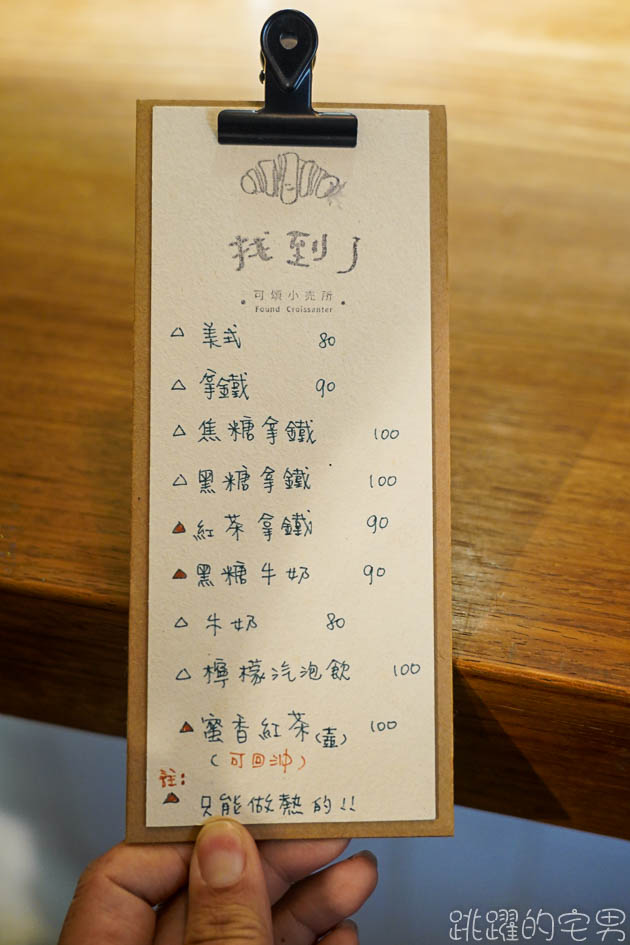 找到了
可頌小売所
Found Croissanter
△ 美式 80
△ 拿鐵 90
△ 焦糖拿鐵 100
△ 黑糖拿鐵 100
▲ 紅茶拿鐵 90
▲ 黑糖牛奶 90
△ 牛奶 80
△ 檸檬汽泡飲 100
▲ 蜜香紅茶(壺) 100
(可回沖)
註:
▲ 只能做熱的!!
跳躍的宅男